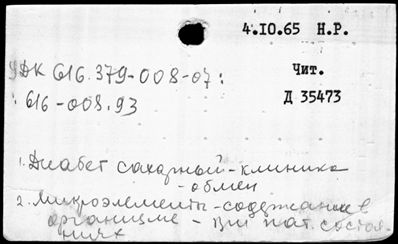 4.IO.65 Н.Р.
УДК 616.379-008-07:
Чит.
: 616-008.93
Д 35473
1. Диабет сахарный-клиника
-обмен
2. Микроэлементы-содержание в
организме - при пат. состоя-
ниях